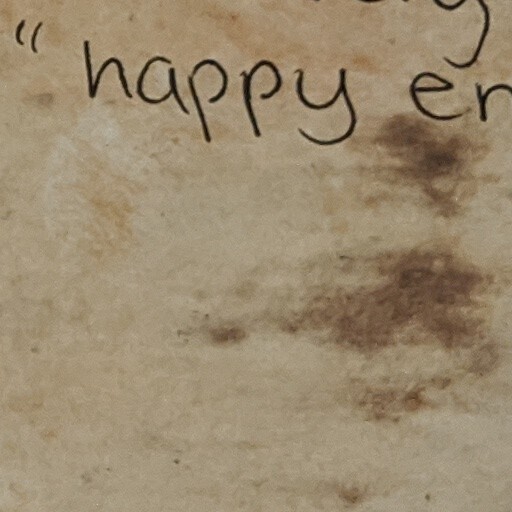 “ happy en